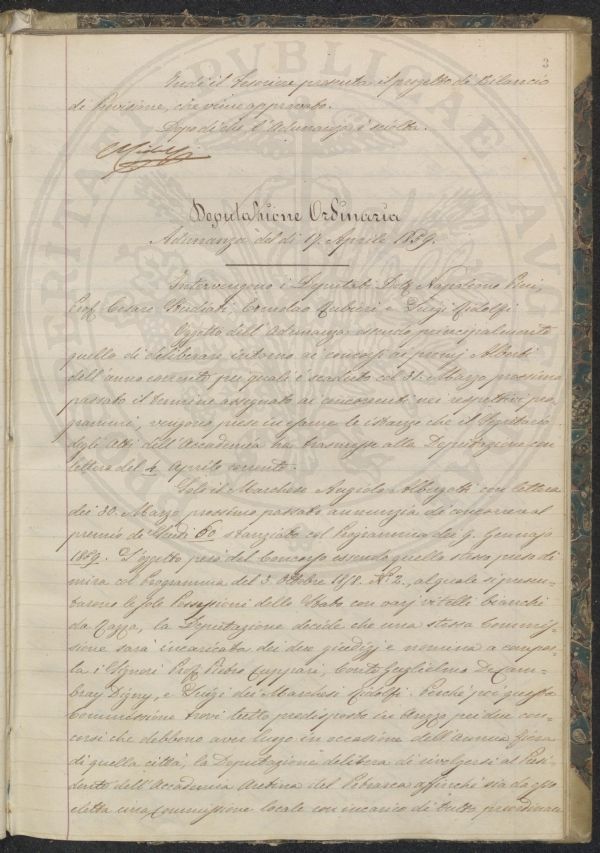 3
Indi il Tesoriere presenta il progetto di Bilancio
di Previsione, che viene approvato.
Dopo di che l'Adunanza è sciolta.
Deputazione Ordinaria
Adunanza del dì 17. Aprile 1859.
Intervengono i Deputati Dott. Napoleone Pini,
Prof. Cesare Studiati, Ermolao Rubieri e Luigi Ridolfi.
Oggetto dell'Adunanza essendo principalmente
quello di deliberare intorno ai concorsi ai premj Alberti
dell'anno corrente pei quali è scaduto col 31. Marzo prossimo
passato il termine assegnato ai concorrenti nei respettivi pro-
grammi, vengono prese in esame le istanze che il Segretario
degli Atti dell'Accademia ha trasmesse alla Deputazione con
lettera del 4. Aprile corrente.
Solo il Marchese Angiolo Albergotti con lettera
dei 30. Marzo prossimo passato annunzia di concorrere al
premio di Scudi 60 stanziato col Programma dei 9. Gennajo
1859. L'oggetto però del Concorso essendo quello stesso preso di
mira col Programma del 3. Ottobre 1858. N.º 2, al quale si presen-
tarono le sole Possessioni dello Stato con varj vitelli bianchi
da razza, la Deputazione decide che una stessa Commis-
sione sarà incaricata dei due giudizj e nomina a compor-
la i Signori Prof. Pietro Cuppari, Conte Guglielmo De Cam-
bray Digny, e Luigi dei Marchesi Ridolfi. Perchè poi questa
Commissione trovi tutto predisposto in Arezzo pei due con-
corsi che debbono aver luogo in occasione dell'annua fiera
di quella città, la Deputazione delibera di rivolgersi al Presi-
dente dell'Accademia Aretina del Petrarca affinchè sia da esso
eletta una Commissione locale con incarico di tutto preordinare